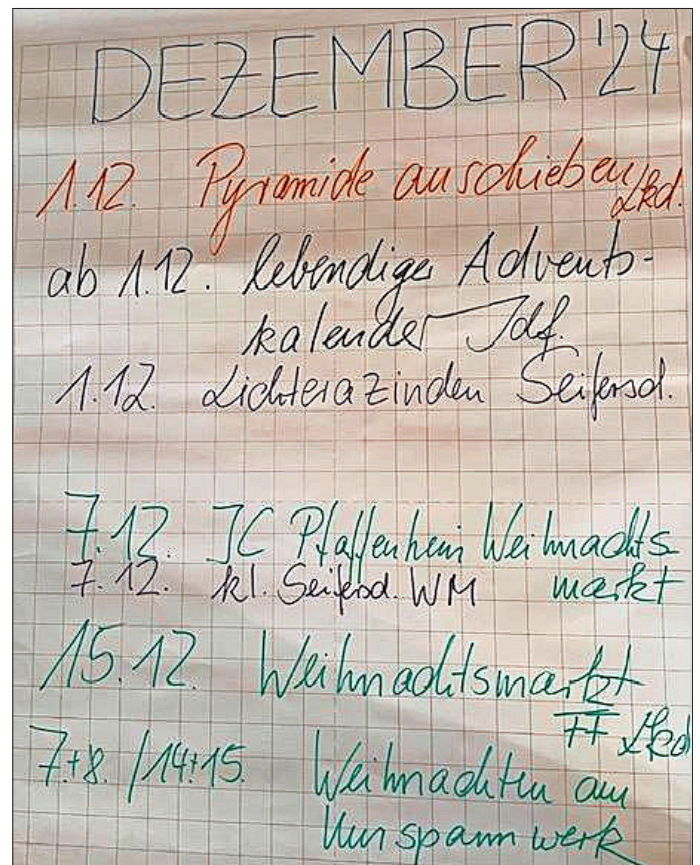 DEZEMBER '24
1.12. Pyramide anschieben Lkd.
ab 1.12. lebendiger Advents-
kalender Jdf.
1.12. Lichterazinden Seifersd.
7.12. JC Pfaffenhein Weihnachts
7.12. kl. Seifersd. WM markt
15.12. Weihnachtsmarkt
FF Lkd
7.+8. / 14+15. Weihnachten am
Umspannwerk